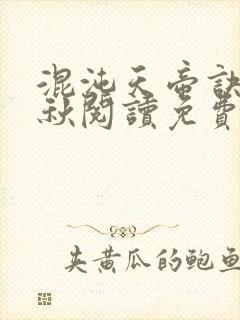 混沌天帝訣
秋閱讀免費
夹黄瓜的鲍鱼